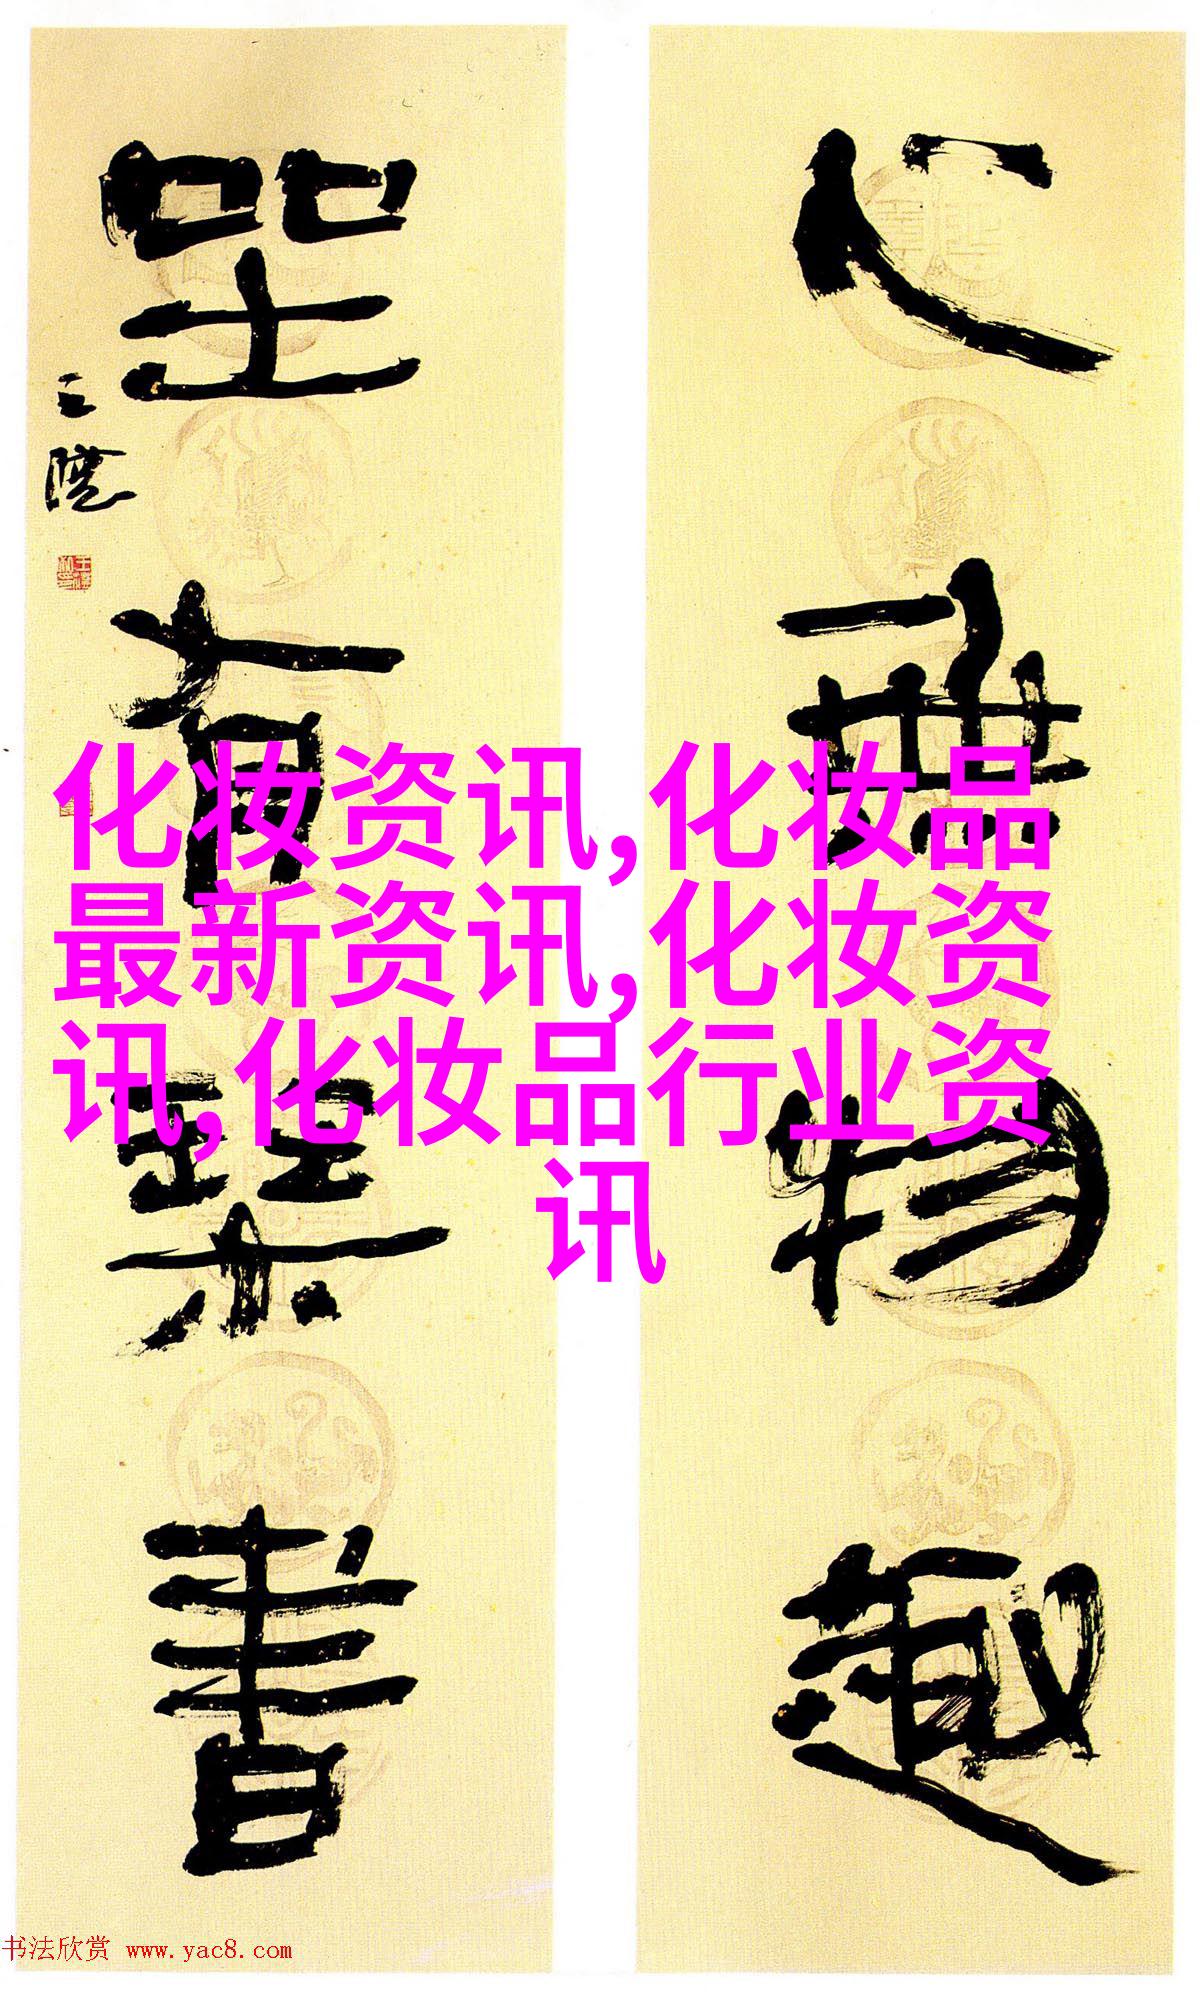 心無物趣
坐有琴書
王鏞
化妆资讯,化妆品
最新资讯,化妆资
讯,化妆品行业资
讯
书法欣赏 www.yac8.com